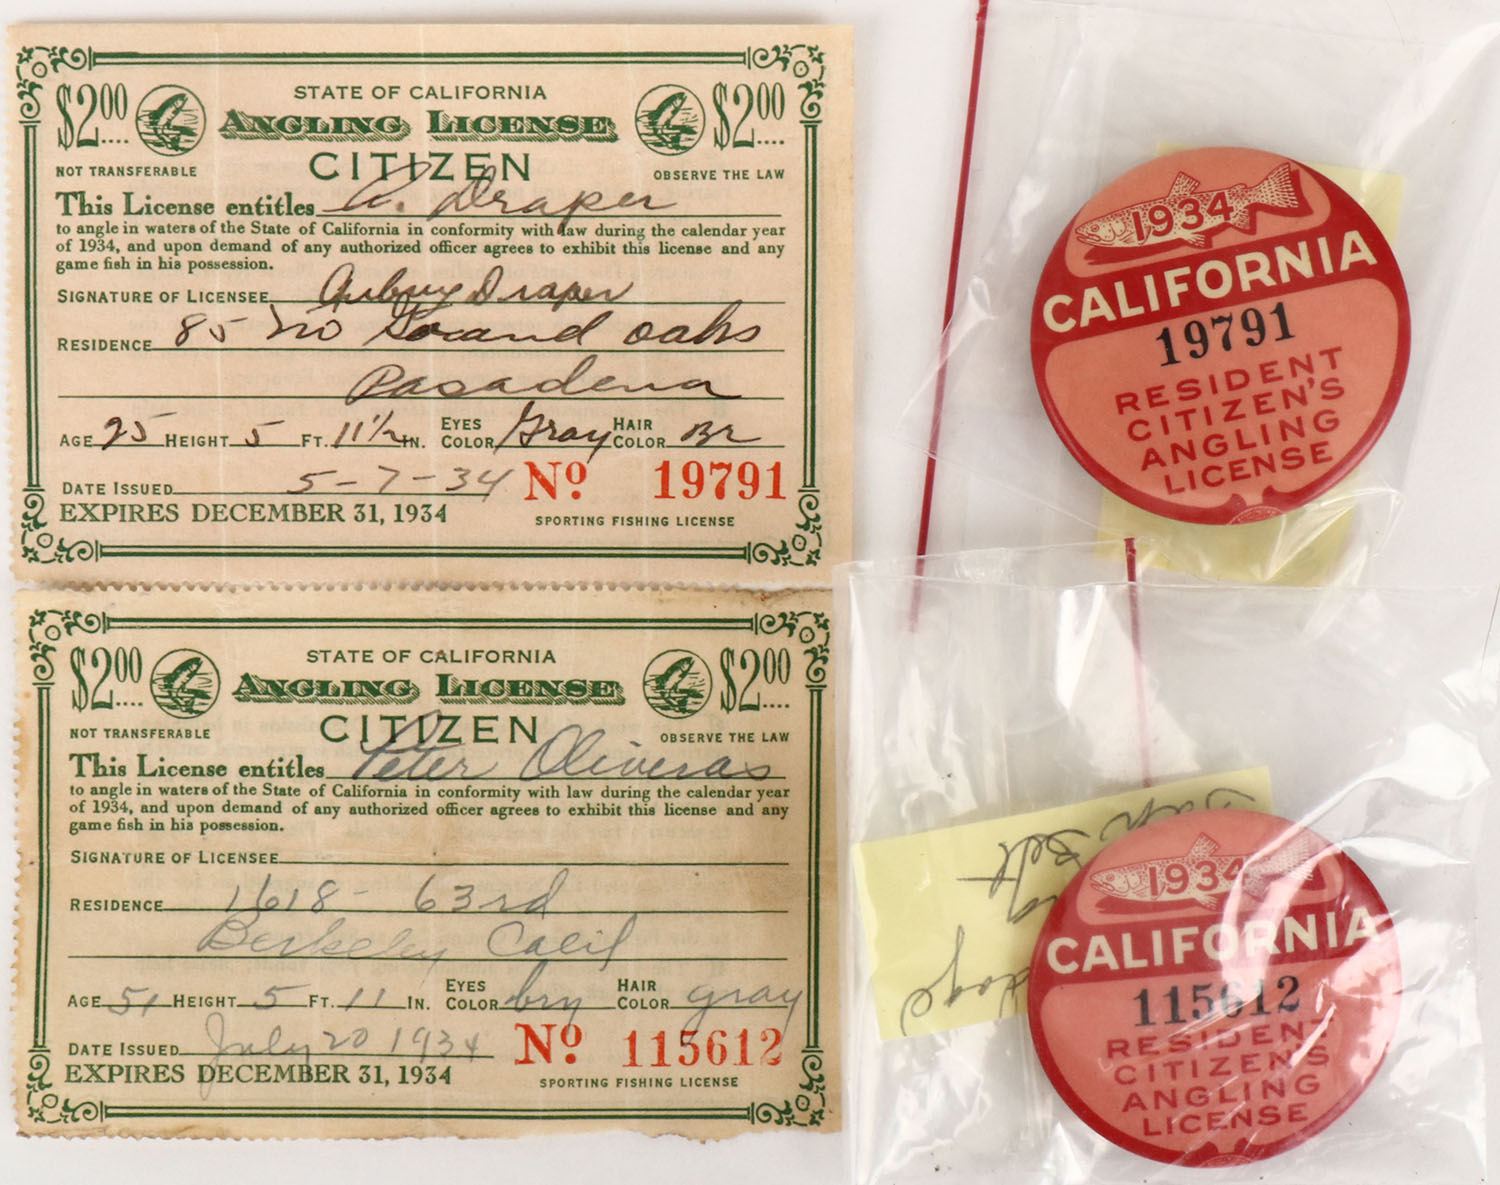 $2.00 STATE OF CALIFORNIA $2.00
ANGLING LICENSE
NOT TRANSFERABLE CITIZEN OBSERVE THE LAW
This License entitles A. Draper
to angle in waters of the State of California in conformity with law during the calendar year
of 1934, and upon demand of any authorized officer agrees to exhibit this license and any
game fish in his possession.
SIGNATURE OF LICENSEE Aubrey Draper
RESIDENCE 85 No Grand oaks
Pasadena
AGE 25 HEIGHT 5 FT. 11½ IN. EYES COLOR Gray HAIR COLOR Br
DATE ISSUED 5-7-34 No. 19791
EXPIRES DECEMBER 31, 1934 SPORTING FISHING LICENSE
$2.00 STATE OF CALIFORNIA $2.00
ANGLING LICENSE
NOT TRANSFERABLE CITIZEN OBSERVE THE LAW
This License entitles Peter Oliveras
to angle in waters of the State of California in conformity with law during the calendar year
of 1934, and upon demand of any authorized officer agrees to exhibit this license and any
game fish in his possession.
SIGNATURE OF LICENSEE
RESIDENCE 1618 - 63rd
Berkeley Calif
AGE 51 HEIGHT 5 FT. 11 IN. EYES COLOR brn HAIR COLOR gray
DATE ISSUED July 20 1934 No. 115612
EXPIRES DECEMBER 31, 1934 SPORTING FISHING LICENSE
1934
CALIFORNIA
19791
RESIDENT
CITIZEN'S
ANGLING
LICENSE
1934
CALIFORNIA
115612
RESIDENT
CITIZEN'S
ANGLING
LICENSE